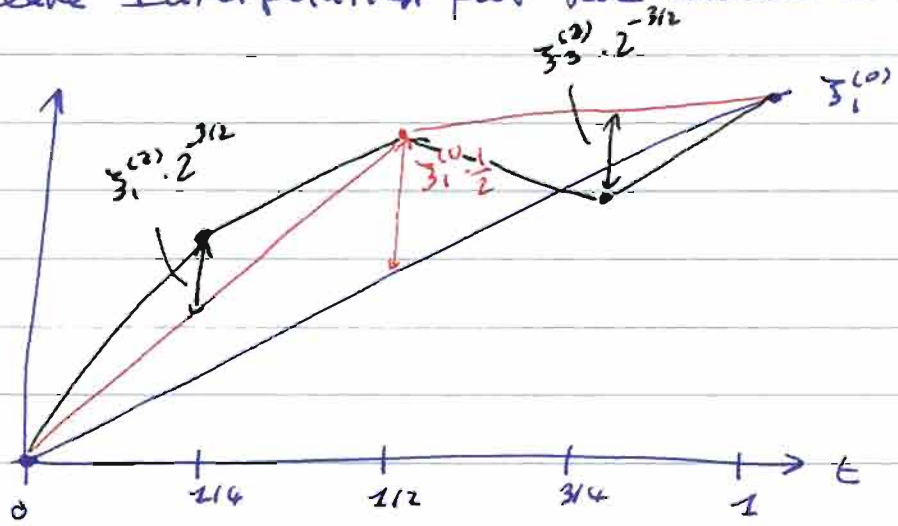 ξ_3^{(2)} · 2^{-3/2}
ξ_1^{(0)}
ξ_1^{(2)} · 2^{-3/2}
ξ_1^{(1)} · 1/2
0 1/4 1/2 3/4 1 t